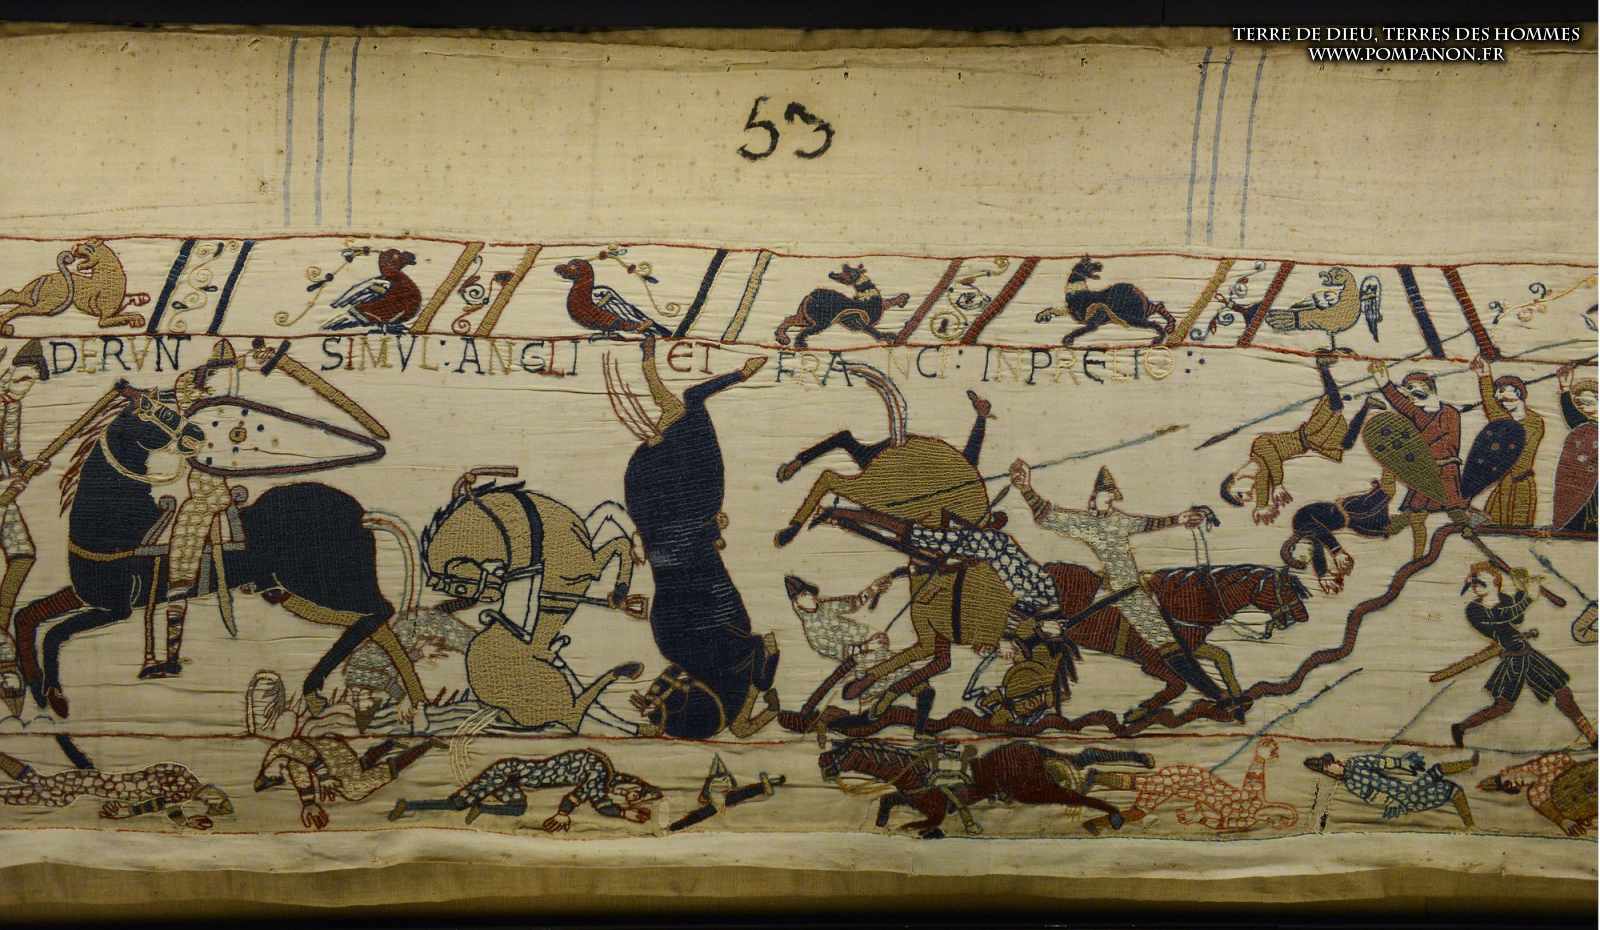 TERRE DE DIEU, TERRES DES HOMMES
WWW.POMPANON.FR
53
DERVNT SIMVL : ANGLI ET FRANCI : IN PRELIO :